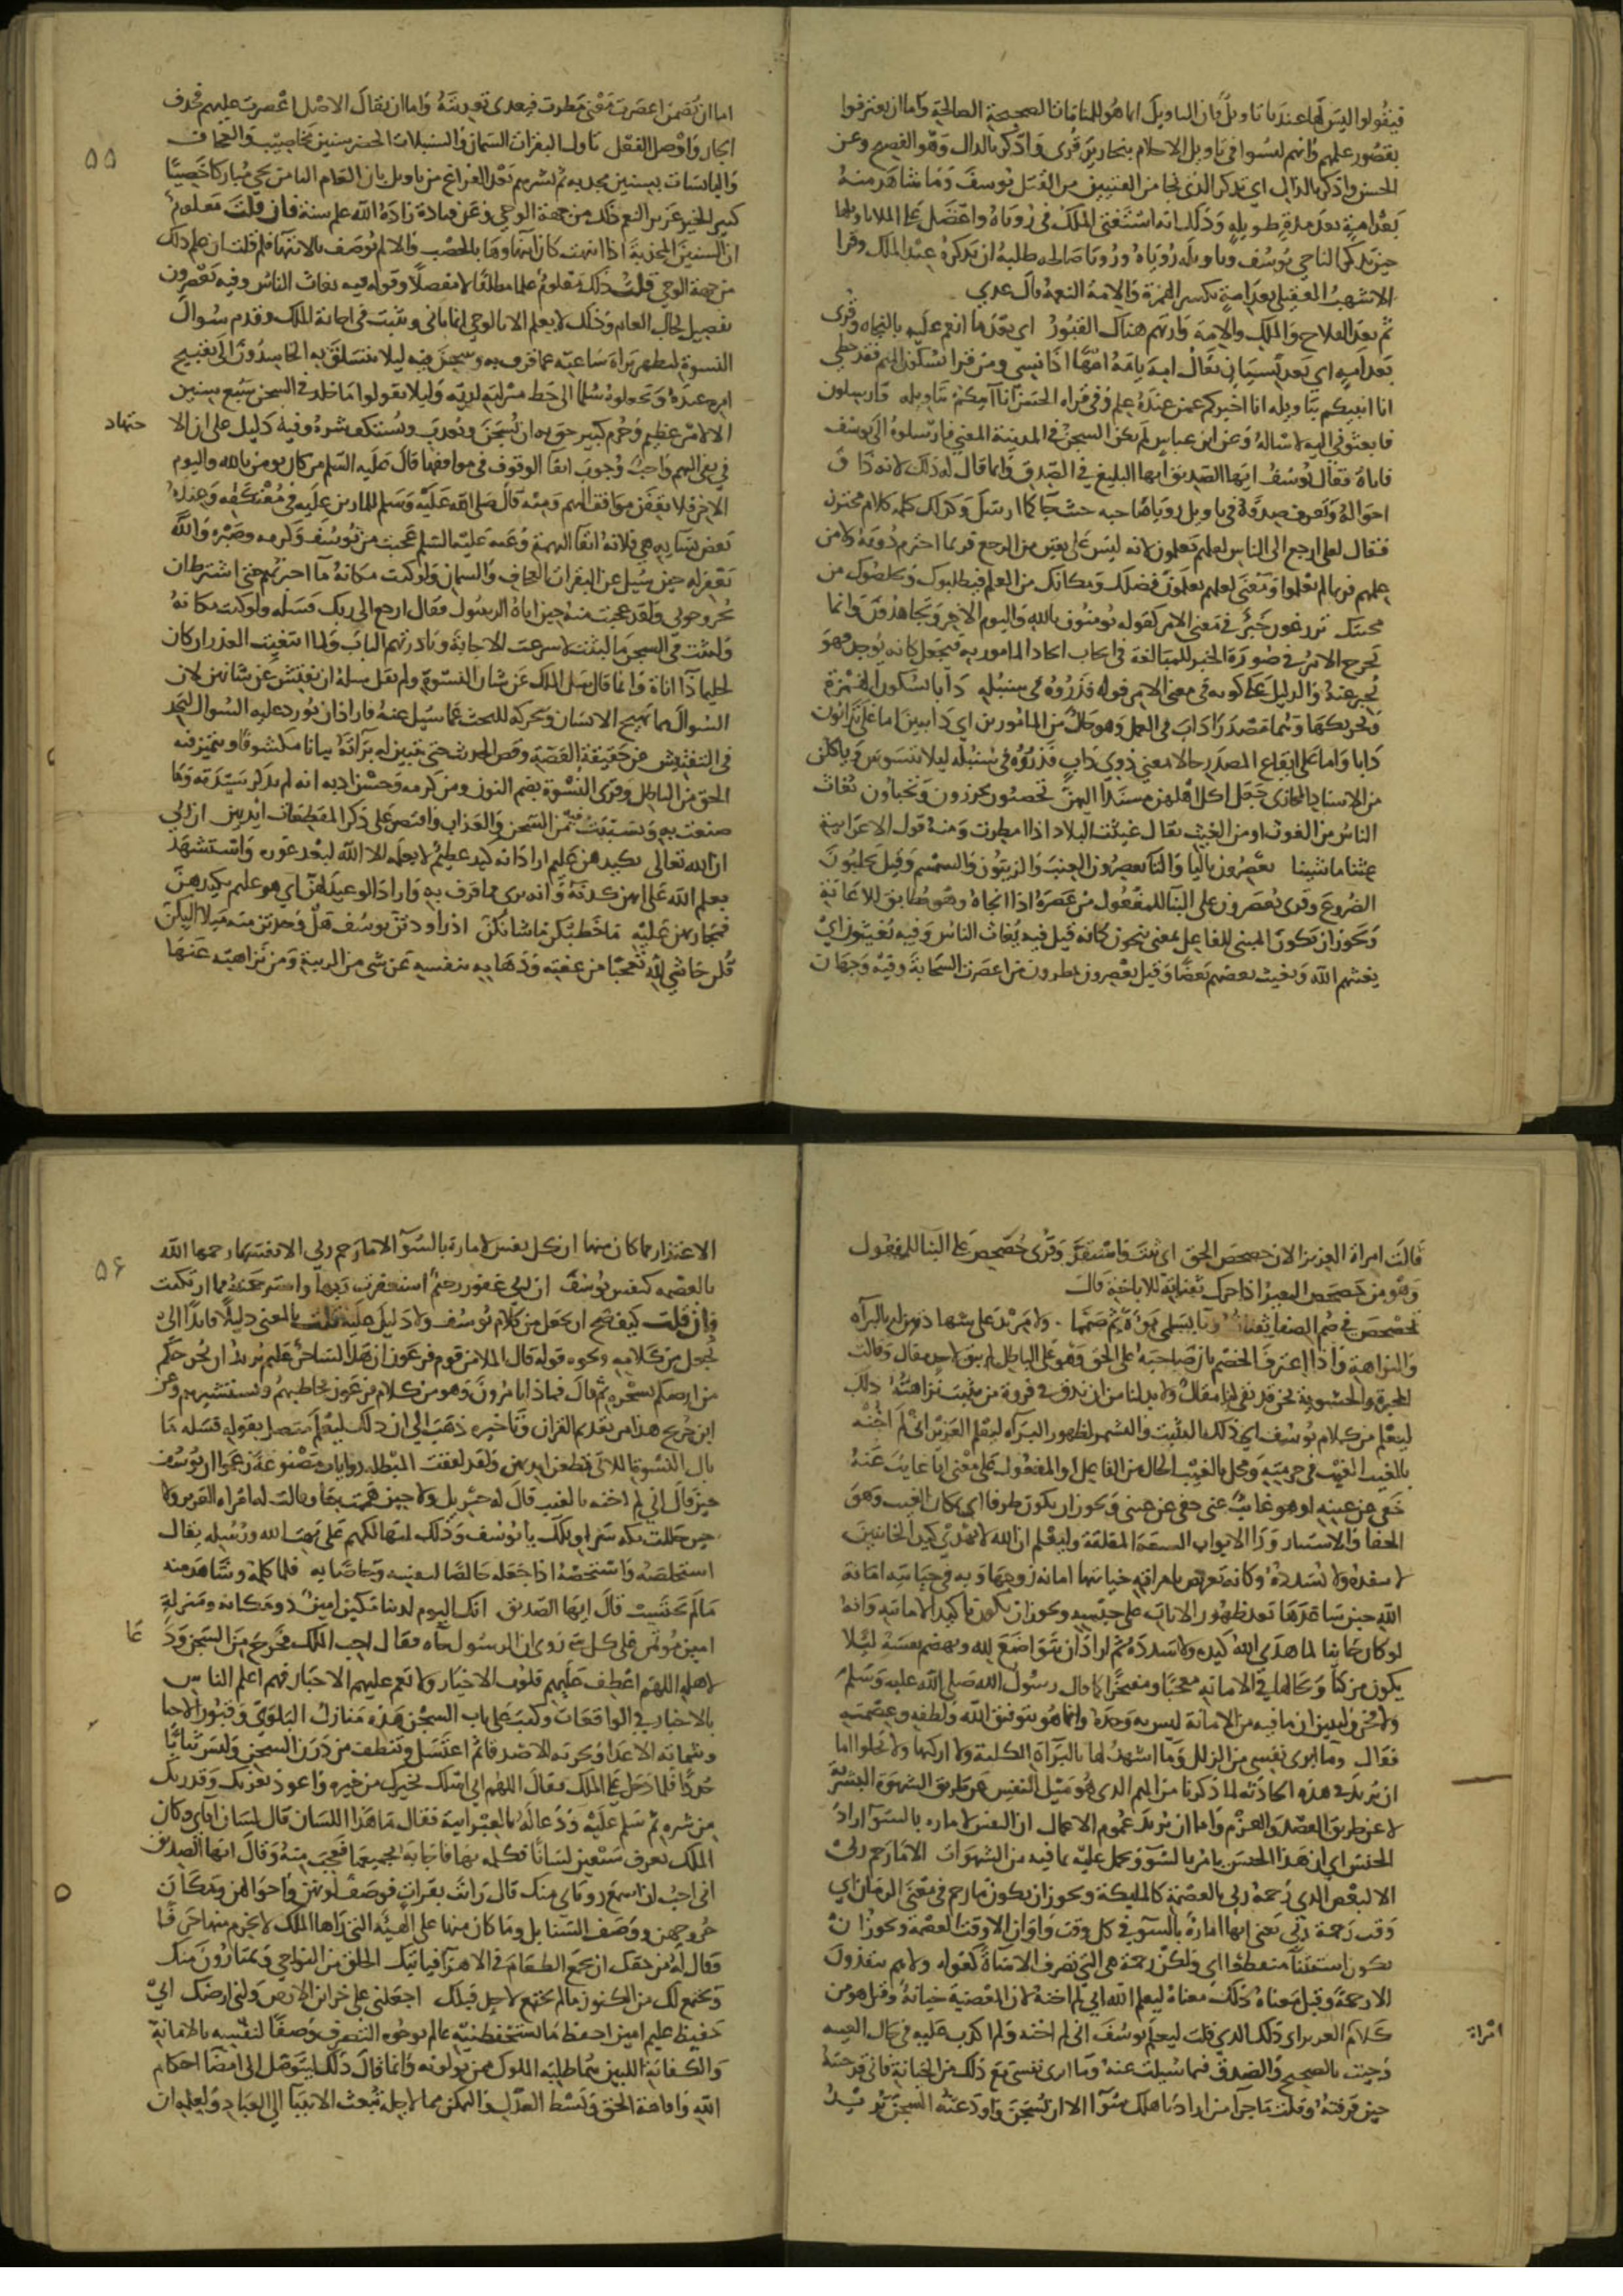 فيقولوا ليس لها عندنا تاويل فان التاويل انما هو للمنامات الصحيحة الصالحة واما ان يعترفوا
بقصور علمهم وانهم ليسوا في تاويل الاحلام بنحارير قرى وادكر بالدال وهو الفصيح وعن
الحسن واذكر بالذال اي تذكر الذي نجا من الفتيين من القتل يوسف وما شاهد منه
بعد امة بعد مدة طويله وذلك انه استفتى الملك في روياه واعضل على الملا تاويلها
حين تذكر الناجي يوسف وتاويله روياه ورويا صاحبه وطلبه ان يذكره عند الملك وقرا
الاشهب العقيلي بعد امة بكسر الهمزة والامة النعمة قال عدي
ثم بعد الفلاح والملك والامة وارتهم هناك القبور اي بعد ما انعم عليه بالنجاه وقرى
بعد امه اي بعد نسيان يقال امه يامه امها اذا نسي ومن قرا بسكون الميم فقد خطي
انا انبيكم بتاويله انا اخبركم عمن عنده علم وفي قراه الحسن انا آتيكم بتاويله فارسلون
فابعثوني اليه لاساله وعن ابن عباس لم يكن السجن في المدينة المعنى فارسلوه الى يوسف
فاتاه فقال يوسف ايها الصديق ايها البليغ في الصدق وانما قال له ذلك لانه ذاق
احواله وتعرف صدقه في تاويل روياه وصاحبه حيث جا كما اول وكذلك كلمه كلام محترز
فقال لعلي ارجع الى الناس لعلهم يعلمون لانه ليس على يقين من الرجع فربما اخترم دونه ولا من
علمهم فربما لم يعلموا ومعنى لعلهم يعلمون فضلك ومكانك من العلم فيطلبوك ويخلصوك من
محنتك تزرعون خبر في معنى الامر كقوله تومنون بالله واليوم الاخر وتجاهدون وانما
يخرج الامر في صورة الخبر للمبالغة في ايجاب ايجاد المامور به فيجعل كانه يوجد فهو
يخبر عنه والدليل على كونه في معنى الامر قوله فذروه في سنبله دابا بسكون الهمزة
وتحريكها وهما مصدرا داب في العمل وهو حال من المامورين اي دايبين اما على تدابون
دابا واما على ايقاع المصدر حالا بمعنى ذوي داب فذروه في سنبله ليلا يتسوس وياكلن
من الاسناد المجازى جعل اكل اهلهن مسندا اليهن تحصنون تحرزون وتخباون يغاث
الناس من الغوث او من الغيث يقال غيثت البلاد اذا امطرت ومنه قول الاعرابية
غثنا ما شينا يعصرون باليا والتا يعصرون العنب والزيتون والسمسم وقيل يحلبون
الضروع وقرى يعصرون على البنا للمفعول من عصره اذا انجاه وهو مطابق للاغاثة
ويجوز ان يكون المبني للفاعل بمعنى ينجون كانه قيل فيه يغاث الناس وفيه يغيثون اي
يغيثهم الله ويغيث بعضهم بعضا وقيل يعصرون يمطرون من اعصرت السحابة وفيه وجهان
اما ان يضمن اعصرت معنى مطرت فيعدى تعديته واما ان يقال الاصل اعصرت عليهم فحذف
الجار واوصل الفعل تاول البقرات السمان والسنبلات الخضر بسنين مخاصيب والعجاف
٥٥
واليابسات بسنين مجدبه ثم بشرهم بعد الفراغ من تاويل بان العام الثامن يجي مباركا خصيبا
كثير الخير غزير النعم وذلك من جهة الوحي وعن قتادة زاده الله علم سنة فان قلت معلوم
ان السنين المجدبة اذا انتهت كان انتهاوها بالخصب والا لم توصف بالانتها فلم قلت ان علم ذلك
من جهة الوحي قلت ذلك معلوم علما مطلقا لا مفصلا وقوله فيه يغاث الناس وفيه يعصرون
تفصيل لحال العام وذلك لا يعلم الا بالوحي انما تانى وتثبت في اجابة الملك وقدم سوال
النسوة ليظهر براة ساحته عما قرف به وسجن فيه ليلا يتسلق به الحاسدون الى تقبيح
امره عنده ويجعلوه سلما الى حط منزلته لديه وليلا يقولوا ما خلد في السجن سبع سنين
الا لامر عظيم وجرم كبير حق به ان يسجن ويعذب ويستكف شره وفيه دليل على ان الا
جتهاد
في نفي التهم واجب وجوب اتقا الوقوف في مواقفها قال عليه السلم من كان يومن بالله واليوم
الاخر فلا يقفن مواقف التهم ومنه قال صلى الله عليه وسلم للمارين عليه في معتكفه وعنده
بعض نسايه هي فلانة اتقا التهمة وعنه عليه السلم لقد عجبت من يوسف وكرمه وصبره والله
يغفر له حين سيل عن البقرات العجاف والسمان ولو كنت مكانه ما اخبرتهم حتى اشترط ان
يخرجوني ولقد عجبت منه حين اتاه الرسول فقال ارجع الى ربك فسله ولو كنت مكانه
ولبثت في السجن ما لبثت لاسرعت الاجابة وبادرتهم الباب ولما ابتغيت العذر ان كان
لحليما ذا اناة وانما قال سل الملك عن شان النسوة ولم يقل سله ان يفتش عن شانهن لان
السوال مما يهيج الانسان ويحركه للبحث عما سيل عنه فاراد ان يورد عليه السوال ليجد
في التفتيش عن حقيقة القصة وفص الحديث حتى يتبين له براته بيانا مكشوفا ويتميز فيه
الحق من الباطل وقرى النسوة بضم النون ومن كرمه وحسن ادبه انه لم يذكر سيدته وما
صنعت به وتسببت فيه من السجن والعذاب واقتصر على ذكر المقطعات ايديهن ان ربي
ان الله تعالى بكيدهن عليم اراد انه كيد عظيم لا يعلمه الا الله لبعد غوره واستشهد
بعلم الله على انهن كدنه وانه بري مما قرف به واراد الوعيد لهن اي هو عليم بكيدهن
فمجازيهن عليه ما خطبكن ما شانكن اذ راودتن يوسف هل وجدتن منه ميلا اليكن
قلن حاشى لله تعجبا من عفته وذهابه بنفسه عن شي من الريبة ومن نزاهته عنها
قالت امراة العزيز الان حصحص الحق اي ثبت واستقر وقرى حصحص على البنا للمفعول
وهو من حصحص البعير اذا حرك ثفناته للاناخة قال
فحصحص في صم الصفا ثفناته ونا بسلمى نوة ثم صمما ولا مزيد على شهادتهن له بالبراه
والنزاهة واذا اعترف الخصم بان صاحبه على الحق وهو على الباطل لم يبق لاحد مقال وقالت
المجبرة والحشوية نحن قد بقي لنا مقال ولا بد لنا من ان ندق في فروة من ثبتت نزاهته ذلك
ليعلم من كلام يوسف اي ذلك التثبت والتشمر لظهور البراه ليعلم العزيز اني لم اخنه
بالغيب بظهر الغيب في حرمته ومحل بالغيب الحال من الفاعل او المفعول على معنى وانا غايب عنه
خفي عن عينه او هو غايب عني خفي عن عيني ويجوز ان يكون ظرفا اي بمكان الغيب وهو
الخفا والاستتار ورا الابواب السبعة المغلقة وليعلم ان الله لا يهدي كيد الخاينين
لا ينفذه ولا يسدده وكانه تعريض بامراته في خيانتها امانة زوجها وبه في خيانته امانة
الله حين ساعدها بعد ظهور الايات على حبسه ويجوز ان يكون تاكيدا لامانته وانه
لو كان خاينا لما هدى الله كيده ولا سدده ثم اراد ان يتواضع لله ويهضم نفسه ليلا
يكون مزكيا وبحالها في الامانة معجبا ومفتخرا كما قال رسول الله صلى الله عليه وسلم
ولا فخر وليبين ان ما فيه من الامانة ليس به وحده وانما هو بتوفيق الله ولطفه وعصمته
فقال وما ابرى نفسي من الزلل وما اشهد لها بالبراة الكلية ولا ازكيها ولا يخلوا اما
ان يريد في هذه الحادثة لما ذكرنا من الهم الذي هو ميل النفس عن طريق الشهوة البشرية
لا عن طريق القصد والعزم واما ان يريد عموم الاحوال ان النفس لامارة بالسوا اراد
الجنس اي ان هذا الجنس يامر بالسو ويحمل عليه بما فيه من الشهوات الا ما رحم ربي
الا البعض الذي رحمه ربي بالعصمة كالمليكة ويجوز ان يكون ما رحم في معنى الزمان اي
وقت رحمة ربي يعني انها امارة بالسو في كل وقت واوان الا وقت العصمة ويجوز ان
يكون استثنا منقطعا اي ولكن رحمة ربي هي التي تصرف الاساة كقوله ولا هم ينقذون
الا رحمة وقيل معناه ذلك معناه ليعلم الله اني لم اخنه لان المعصية خيانة وقيل هو من
كلام العزيز اي ذلك الذي قلت ليعلم يوسف اني لم اخنه ولم اكذب عليه في حال الغيبه
امراة
وجيت بالصحيح والصدق فيما سيلت عنه وما ابرى نفسي مع ذلك من الخيانة فاني قد خنته
حين قرفته وقلت ما جزا من اراد باهلك سوا الا ان يسجن واودعته السجن تريد
الاعتذار مما كان منها ان كل نفس لامارة بالسوا الا ما رحم ربي الا نفسا رحمها الله
بالعصمه كنفس يوسف ان ربي غفور رحيم استغفرت ربها واسترحمته مما ارتكبت
٥٦
فان قلت كيف صح ان يجعل من كلام يوسف ولا دليل عليه قلت بالمعنى دليلا قايدا الى ان
يجعل من كلامه ونحوه قوله قال الملا من قوم فرعون ان هذا لساحر عليم يريد ان يخرجكم
من ارضكم بسحره ثم قال فماذا تامرون وهو من كلام فرعون يخاطبهم ويستشيرهم وعن
ابن جريج هذا من تقديم القران وتاخيره ذهب الى ان ذلك ليعلم متصل بقوله فسله ما
بال النسوة اللاتي قطعن ايديهن ولقد لفقت المبطله روايات مصنوعة زعموا ان يوسف
حين قال اني لم اخنه بالغيب قال له جبريل ولا حين هممت بها وقالت له امراه العزيز ولا
حين حللت تكة سراويلك يا يوسف وذلك لتهالكهم على بهت الله ورسله يقال
استخلصه واستخصه اذا جعله خالصا لنفسه وخاصا به فلما كلمه وشاهد منه
ما لم يحتسب قال ايها الصديق انك اليوم لدينا مكين امين ذو مكانة ومنزلة
امين موتمن على كل شي روى ان الرسول جاه فقال اجب الملك فخرج من السجن ود
عا
لاهله اللهم اعطف عليهم قلوب الاخيار ولا تعم عليهم الاخبار فهم اعلم الناس
بالاخبار في الواقعات وكتب على باب السجن هذه منازل البلوى وقبور الاحيا
وشماتة الاعدا وتجربة الاصدقا ثم اغتسل وتنظف من درن السجن ولبس ثيابا
جددا فلما دخل على الملك فقال اللهم اني اسلك بخيرك من خيره واعوذ بعزتك وقدرتك
من شره ثم سلم عليه ودعا له بالعبرانية فقال ما هذا اللسان قال لسان اباي وكان
الملك يعرف سبعين لسانا فكلمه بها فاجابه بجميعها فعجب منه وقال ايها الصديق
اني احب ان اسمع روياي منك قال رايت بقرات فوصف لونهن واحوالهن ومكان
خروجهن ووصف السنابل وما كان منها على الهيئة التي راها الملك لا يخرم منها حرفا
وقال له من حقك ان تجمع الطعام في الاهرا فياتيك الخلق من النواحي ويمتارون منك
ويجتمع لك من الكنوز ما لم يجتمع لاحد قبلك اجعلني على خزاين الارض ولني ارضك اني
حفيظ عليم امين احفظ ما تستحفظنيه عالم بوجوه التصرف وصفا لنفسه بالامانة
والكفاية اللتين هما طلبة الملوك ممن يولونه وانما قال ذلك ليتوصل الى امضا احكام
الله واقامة الحق وبسط العدل والتمكن مما لاجله تبعث الانبيا الى العباد وليعلمه ان